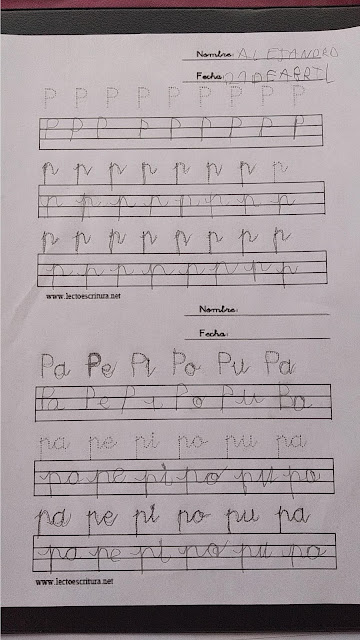 Nombre: ALEJANDRO
Fecha: 21 DE ABRIL
P P P P P P P P
P P P P P P P P P
p p p p p p p p
p p p p p p p p p
p p p p p p p p
p p p p p p p p
www.lectoescritura.net
Nombre:
Fecha:
Pa Pe Pi Po Pu Pa
Pa Pe Pi Po Pu Pa
pa pe pi po pu pa
pa pe pi po pu pa
pa pe pi po pu pa
pa pe pi po pu pa
www.lectoescritura.net